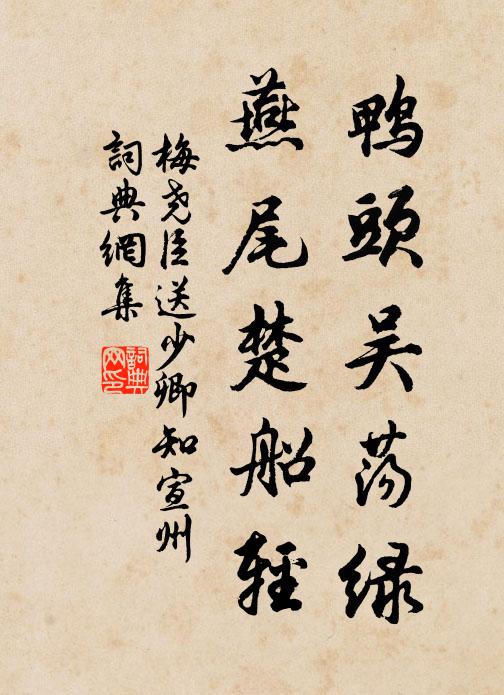 鸭頭吴荡緑
燕尾楚船輕
梅尧臣送少卿知宣州
詞典網集
詞典
网印